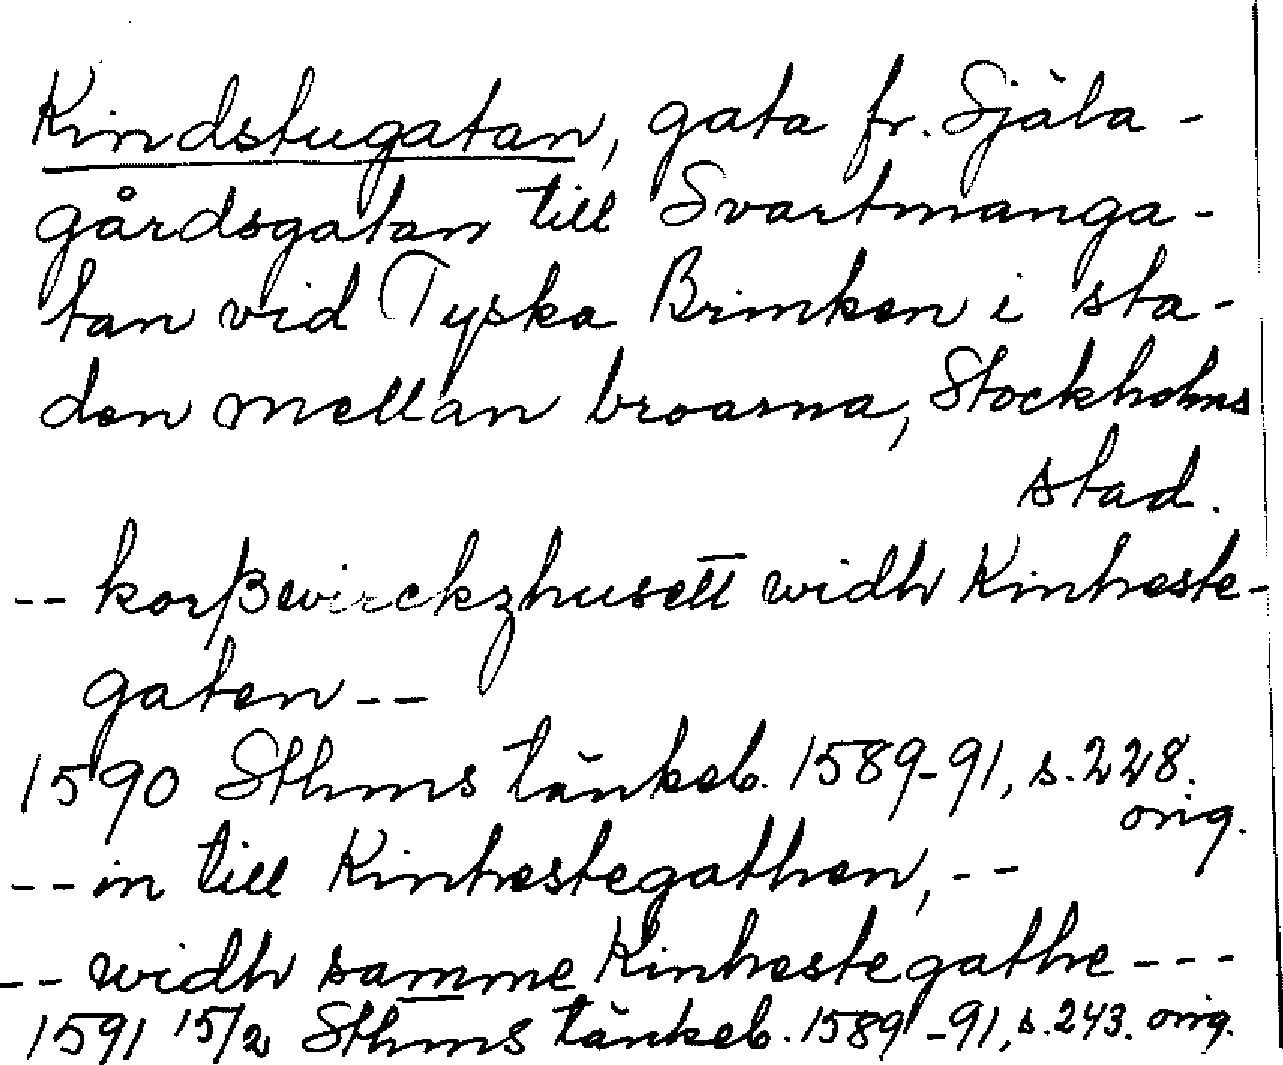 Kindstugatan, gata fr. Själa-
gårdsgatan till Svartmanga-
tan vid Tyska Brinken i sta-
den mellan broarna, Stockholms
stad.
-- korßwirckzhusett widh Kinheste-
gaten --
1590 Sthms tänkeb. 1589-91, s. 228.
orig.
-- in till Kinhestegathen, --
-- widh samme Kinhestegathe ---
1591 15/2 Sthms tänkeb. 1589-91, s. 243. orig.